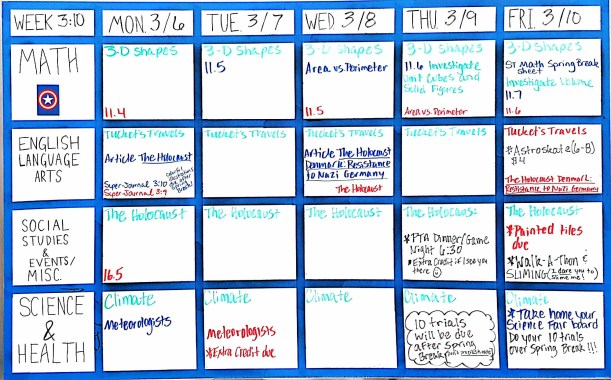 WEEK 3:10
MON. 3/6
TUE. 3/7
WED. 3/8
THU. 3/9
FRI. 3/10
MATH
3-D Shapes
11.4
3-D Shapes
11.5
3-D Shapes
Area vs. Perimeter
11.5
11.6 Investigate
Unit Cubes and
Solid Figures
Area vs. Perimeter
3-D Shapes
ST Math Spring Break
sheet
Investigate Volume
11.7
11.6
ENGLISH
LANGUAGE
ARTS
Tucket's Travels
Article The Holocaust
Super-Journal 3:10
Super-Journal 3:9
Tucket's Travels
Tucket's Travels
Article The Holocaust
Denmark: Resistance
to Nazi Germany
The Holocaust
Tucket's Travels
Tucket's Travels
*Astroskate (6-8)
$4
The Holocaust Denmark:
Resistance to Nazi Germany
SOCIAL
STUDIES
&
EVENTS/
MISC.
The Holocaust
16.5
The Holocaust
The Holocaust
The Holocaust
*PTA Dinner/Game
Night 6:30
*Extra Credit if I see you
there
The Holocaust
*Painted tiles
due
*Walk-A-Thon &
SLIMING (I dare you to
slime me!)
SCIENCE
&
HEALTH
Climate
Meteorologists
Climate
Meteorologists
*Extra Credit due
Climate
Climate
10 trials
will be due
after Spring
Break
Climate
*Take home your
Science Fair board
Do your 10 trials
over Spring Break!!!